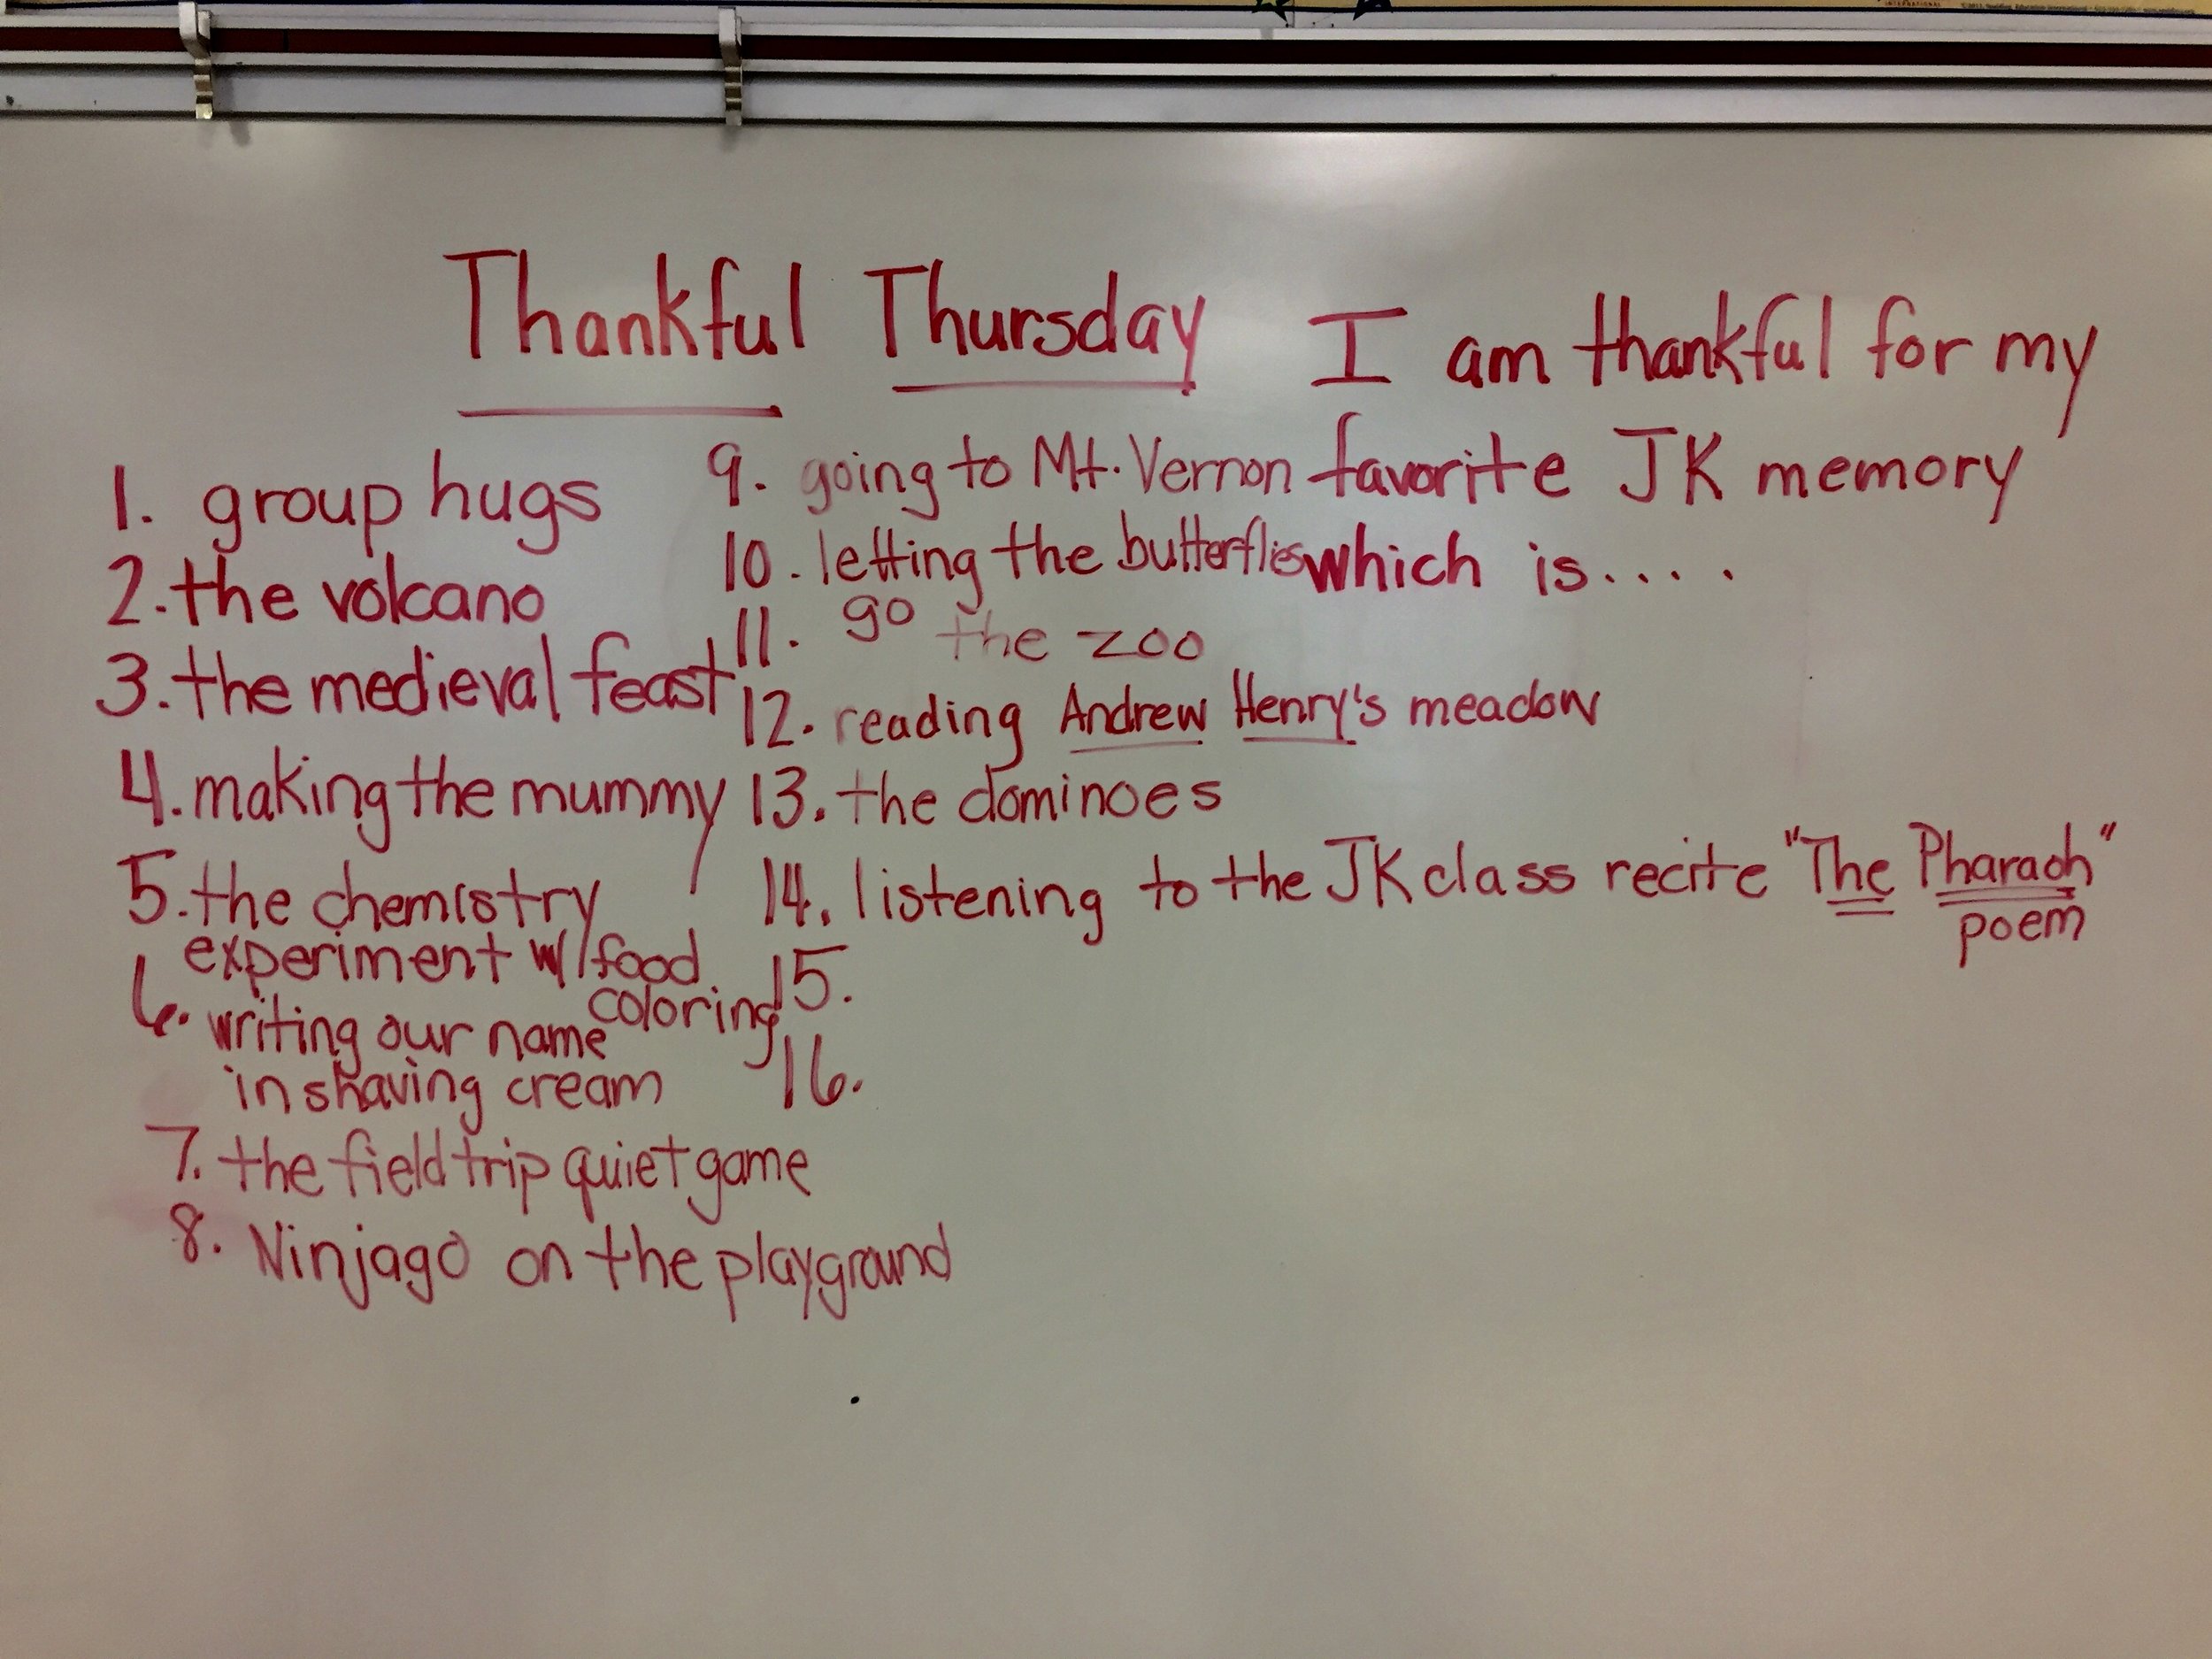 Thankful Thursday
I am thankful for my
favorite JK memory
which is....
1. group hugs
2. the volcano
3. the medieval feast
4. making the mummy
5. the chemistry
experiment w/food
coloring
6. writing our name
in shaving cream
7. the field trip quiet game
8. Ninjago on the playground
9. going to Mt. Vernon
10. letting the butterflies
go
11. the zoo
12. reading Andrew Henry's meadow
13. the dominoes
14. listening to the JK class recite "The Pharaoh"
poem
15.
16.